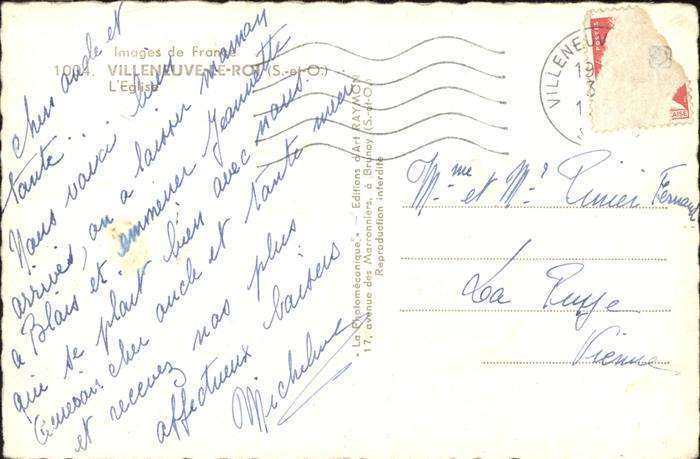 Images de France
1004. VILLENEUVE-LE-ROI (S.-et-O.)
L'Eglise
chers oncle et
tante
Nous voici bien
arrivés, on a laisser maman
a Blois et emmener Jeannette
qui se plait bien avec nous
cher oncle et tante mes
et recevez nos plus
affectueux baisers
Micheline
"La Photomécanique" — Editions d'Art RAYMON
17, avenue des Marronniers, à Brunoy (S.-et-O.)
Reproduction interdite
VILLENEU
POSTES
AISE
Mme et Mr Fernand
La Puye
Vienne